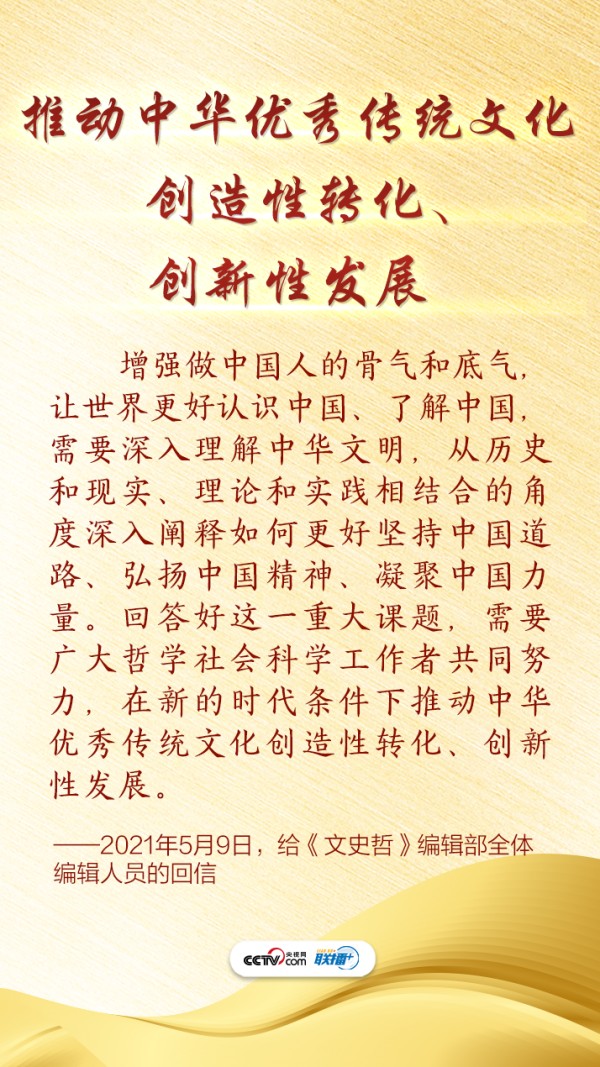 推动中华优秀传统文化
创造性转化、
创新性发展
增强做中国人的骨气和底气，
让世界更好认识中国、了解中国，
需要深入理解中华文明，从历史
和现实、理论和实践相结合的角
度深入阐释如何更好坚持中国道
路、弘扬中国精神、凝聚中国力
量。回答好这一重大课题，需要
广大哲学社会科学工作者共同努
力，在新的时代条件下推动中华
优秀传统文化创造性转化、创新
性发展。
——2021年5月9日，给《文史哲》编辑部全体
编辑人员的回信
CCTV.com 央视网 联播+